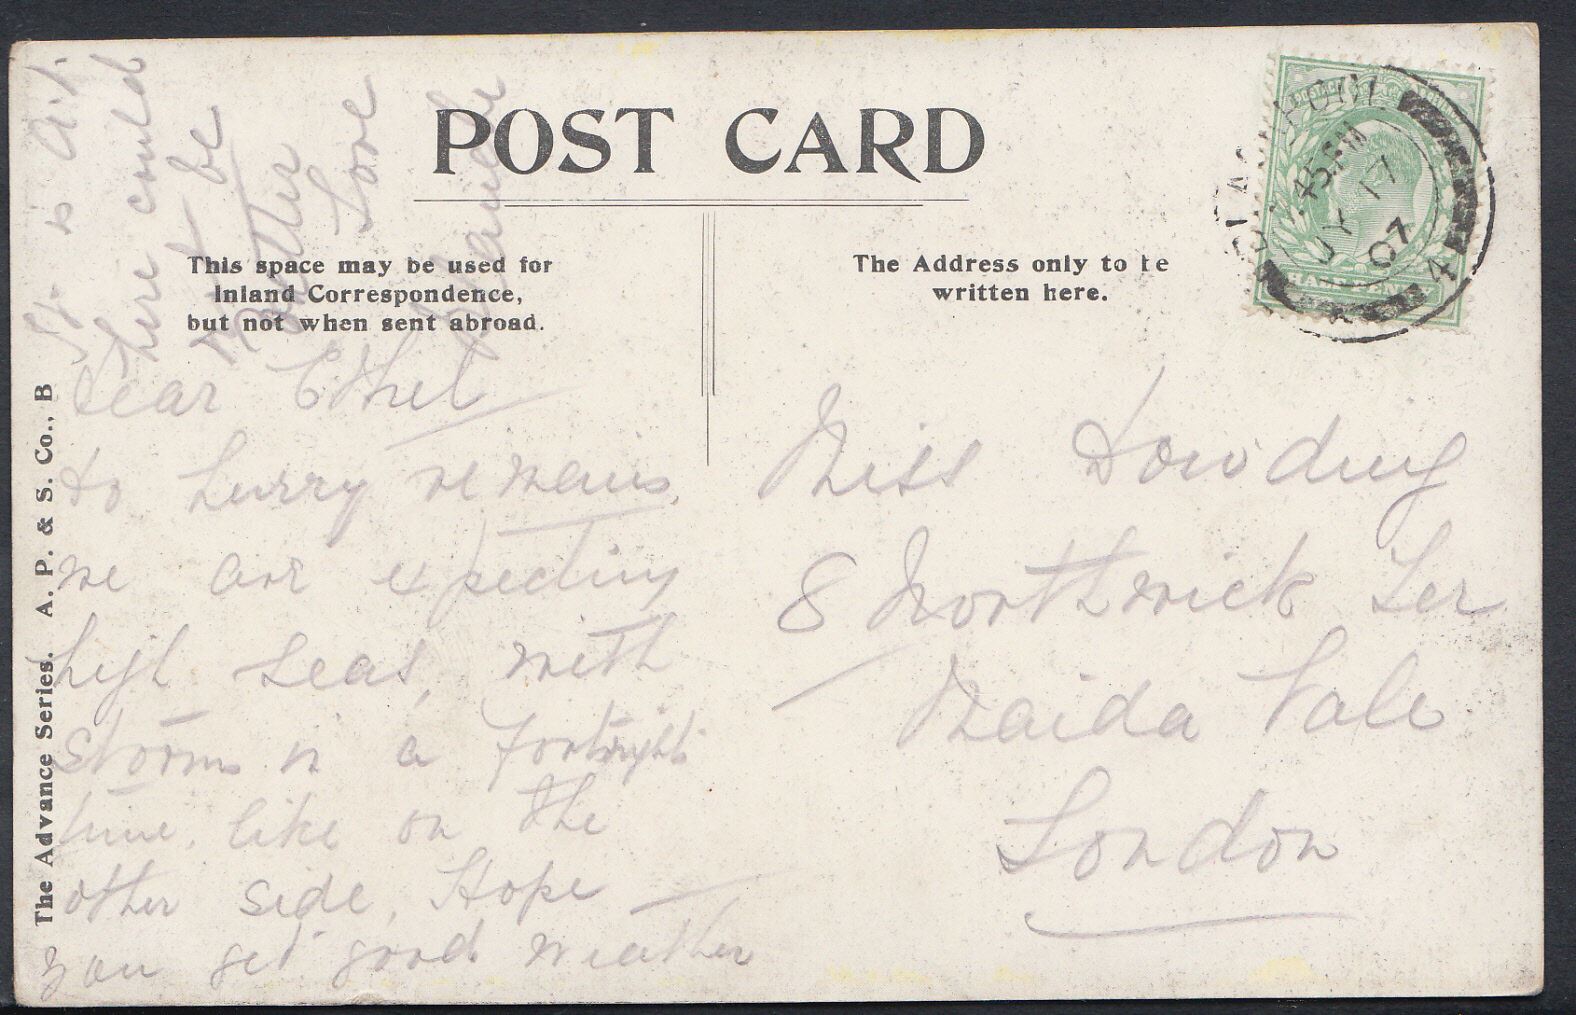 POST CARD
This space may be used for
Inland Correspondence,
but not when sent abroad.
The Address only to be
written here.
The Advance Series. A. P. & S. Co., B
HALFPENNY
45 PM
JY 17
07
4
Dear Ethel
to hurry
we are expecting
high seas, with
storms in a fortnight
time, like on the
other side, Hope
you get good weather
It is
there could
be
better
Love
Miss Dowding
8 Northwick Ter
Maida Vale
London